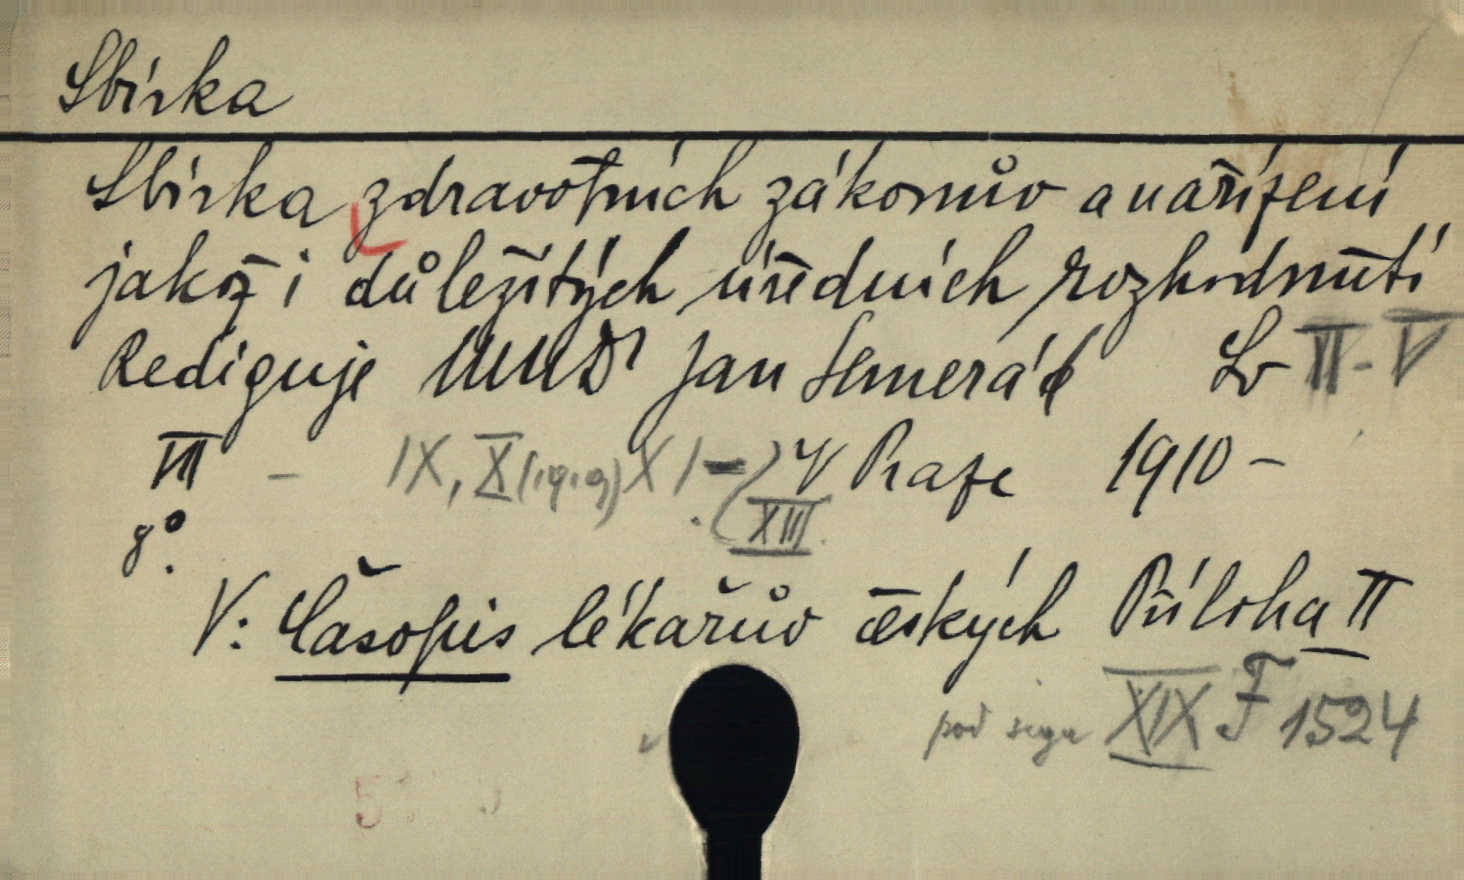 Sbírka
Sbírka zdravotních zákonův a nařízení
jakož i důležitých úředních rozhodnutí
Rediguje MUDr Jan Semerád Sv II-V
VII - IX, X(1919) XI - XIII. V Praze 1910 -
8°.
V: Časopis lékařův českých Příloha II
pod sign XIX F 1524